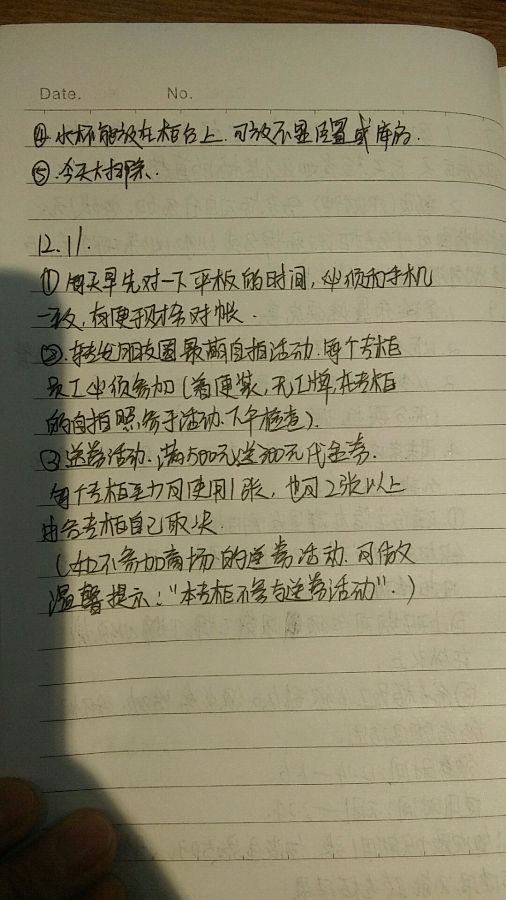 Date. No.
④ 水杯能放在柜台上. 可放不显位置或库房.
⑤. 今天大扫除.
12.11.
① 每天早先对一下平板的时间, 必须和手机
一致, 方便于财务对帐.
②. 转发朋友圈最萌自拍活动. 每个专柜
员工必须参加 (着便装, 无工牌, 在专柜
的自拍照参于活动. 下午检查).
③ 送券活动. 满500元送300元代金券.
每个专柜至少可使用1张, 也可2张以上
由各专柜自己取决.
(如不参加商场的送券活动. 可做个
温馨提示: "本专柜不参与送券活动". )